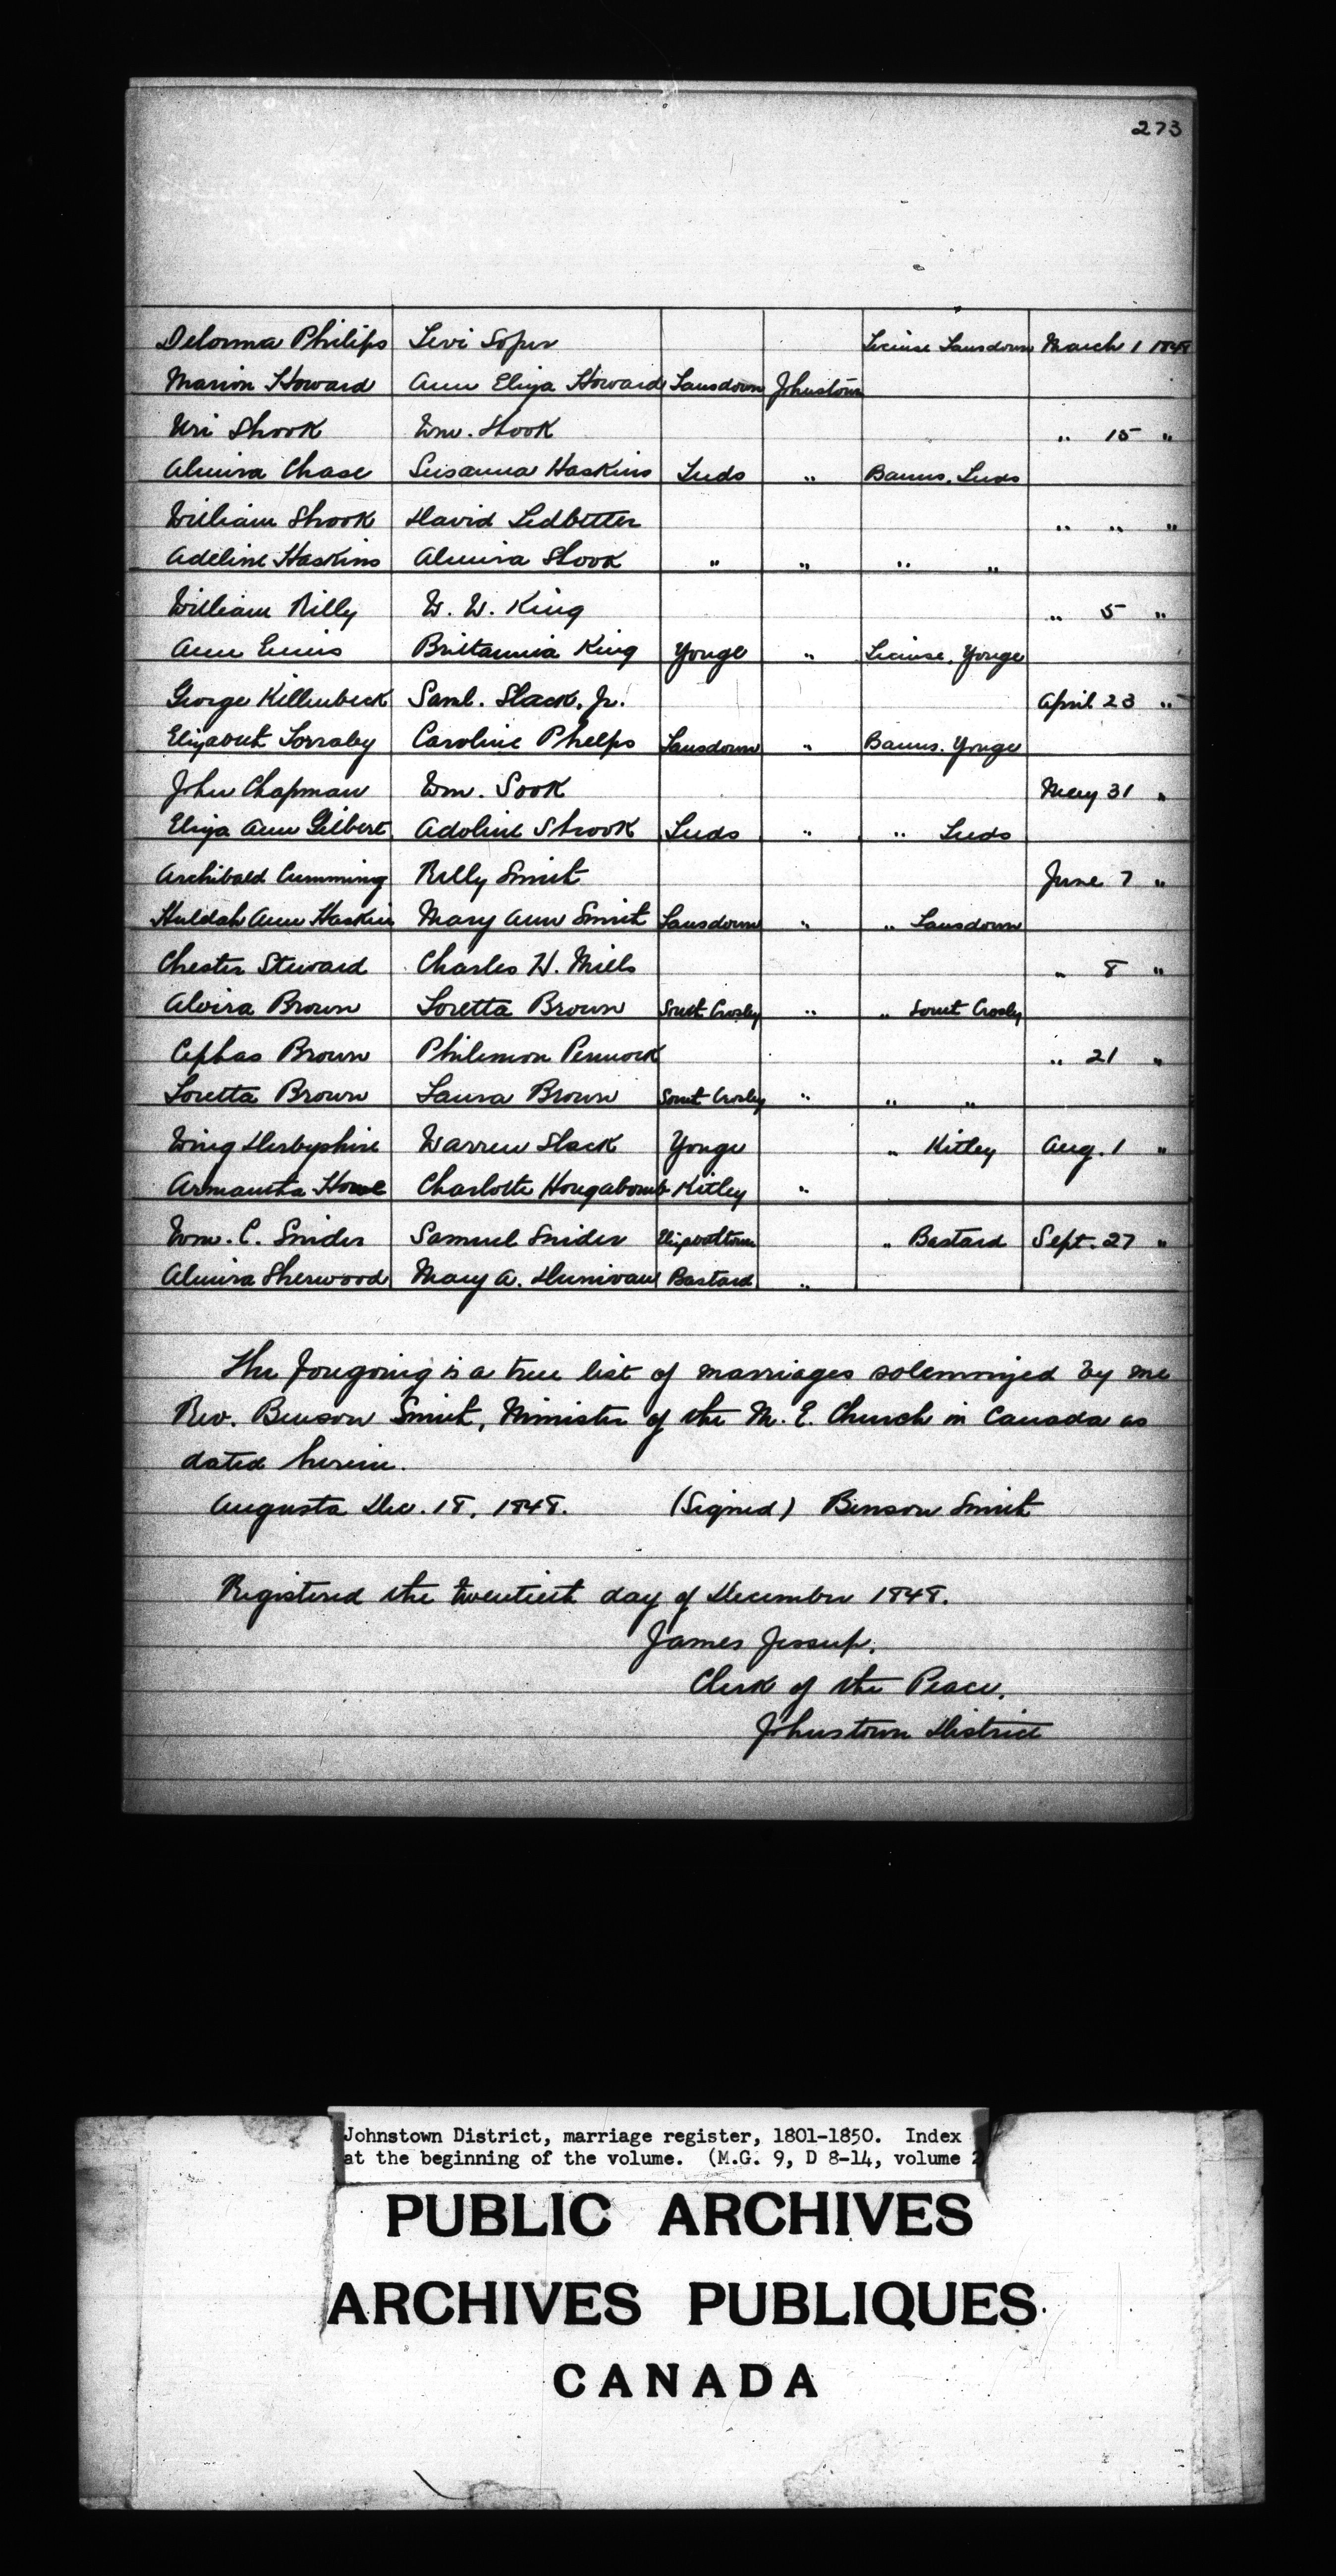 273
Delorma Philips Levi Soper License Lansdown March 1 1848
Marion Howard Ann Eliza Howard Lansdown Johnstown
Uri Shook Wm. Shook " 15 "
Almira Chase Susanna Haskins Leeds " Banns. Leeds
William Shook David Ledbetter " " "
Adeline Haskins Almira Shook " " " "
William Rilly W. W. King " 5 "
Ann Ennis Brittannia King Yonge " License, Yonge
George Killenbeck Saml. Slack, Jr. April 23 "
Elizabeth Caroline Phelps Lansdown " Banns. Yonge
John Chapman Wm. Sook May 31 "
Eliza Ann Gilbert Adoline Shook Leeds " " Leeds
Archibald Cumming Smith June 7 "
Huldah Ann Haskins Mary Ann Smith Lansdown " " Lansdown
Chester Steward Charles H. Mills " 8 "
Alvira Brown Loretta Brown South Crosby " " South Crosby
Cephas Brown Philemon Pennock " 21 "
Loretta Brown Laura Brown South Crosby " " "
Wing Derbyshire Warren Slack Yonge " Kitley Aug. 1 "
Armantha Howe Charlotte Hougabomb Kitley "
Wm. C. Snider Samuel Snider Elizabethtown " Bastard Sept. 27 "
Almira Sherwood Mary A. Dunivan Bastard "
The foregoing is a true list of marriages solemnized by me
Rev. Benson Smith, Minister of the M. E. Church in Canada as
dated herein.
Augusta Dec. 18, 1848. (Signed) Benson Smith
Registered the twentieth day of December 1848.
James Jessup,
Clerk of the Peace,
Johnstown District
Johnstown District, marriage register, 1801-1850. Index
at the beginning of the volume. (M.G. 9, D 8-14, volume 2
PUBLIC ARCHIVES
ARCHIVES PUBLIQUES
CANADA